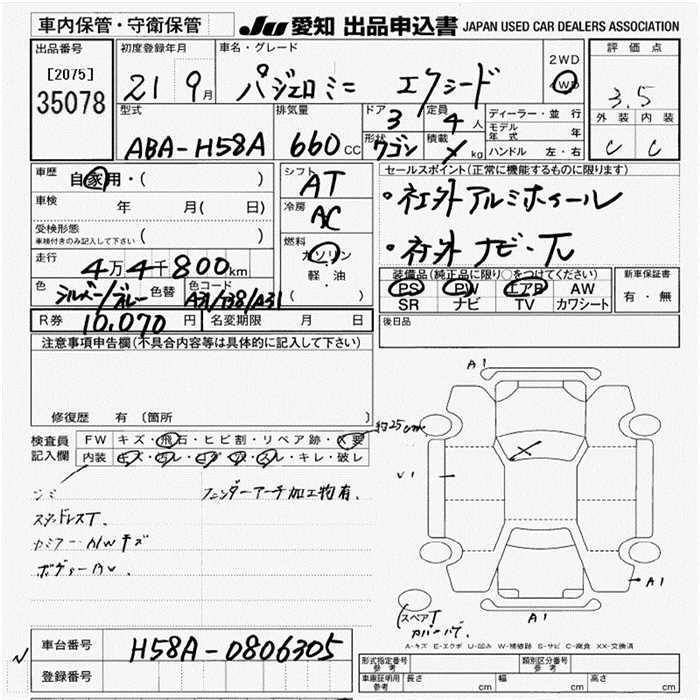 車内保管・守衛保管
JU 愛知 出品申込書 JAPAN USED CAR DEALERS ASSOCIATION
出品番号
[2075]
35078
初度登録年月
21 9月
車名・グレード
パジェロミニ エクシード
2WD
4WD
評価点
3.5
外装 内装
C C
型式
ABA-H58A
排気量
660 CC
ドア
3
形状
ワゴン
定員
4人
積載
kg
ディーラー・並行
モデル年式 年
ハンドル 左・右
車歴
自家用・( )
車検
年 月( 日)
受検形態
車検付きのみ記入して下さい ( )
走行
4万4千800km
色
シルバー/グレー
色替
色コード
A31/T38/A31
シフト
AT
冷房
AC
燃料
ガソリン
軽・油
( )
R券
10,070円
名変期限 月 日
セールスポイント(正常に機能するものに限ります)
・社外アルミホイール
・社外ナビ・TV
装備品(純正品に限り○をつけてください)
PS PW エアB AW
SR ナビ TV カワシート
新車保証書
有・無
後日品
注意事項申告欄(不具合内容等は具体的に記入して下さい)
修復歴 有(箇所 )
検査員記入欄
FW キズ・飛石・ヒビ割・リペア跡・X要
内装 キズ・汚レ・コゲ・穴・スレ・キレ・破レ
フェンダーアーチ加工物有.
スタッドレスT.
A1
約25cm
A1
A1
スペアT
カバーハゲ.
A-キズ E-エクボ U-凹み W-補修跡 S-サビ C-腐食 XX-交換済
車台番号
H58A-0806305
登録番号
形式指定番号 参考
類別区分番号 参考
車庫証明用 参考
長さ cm
幅 cm
高さ cm